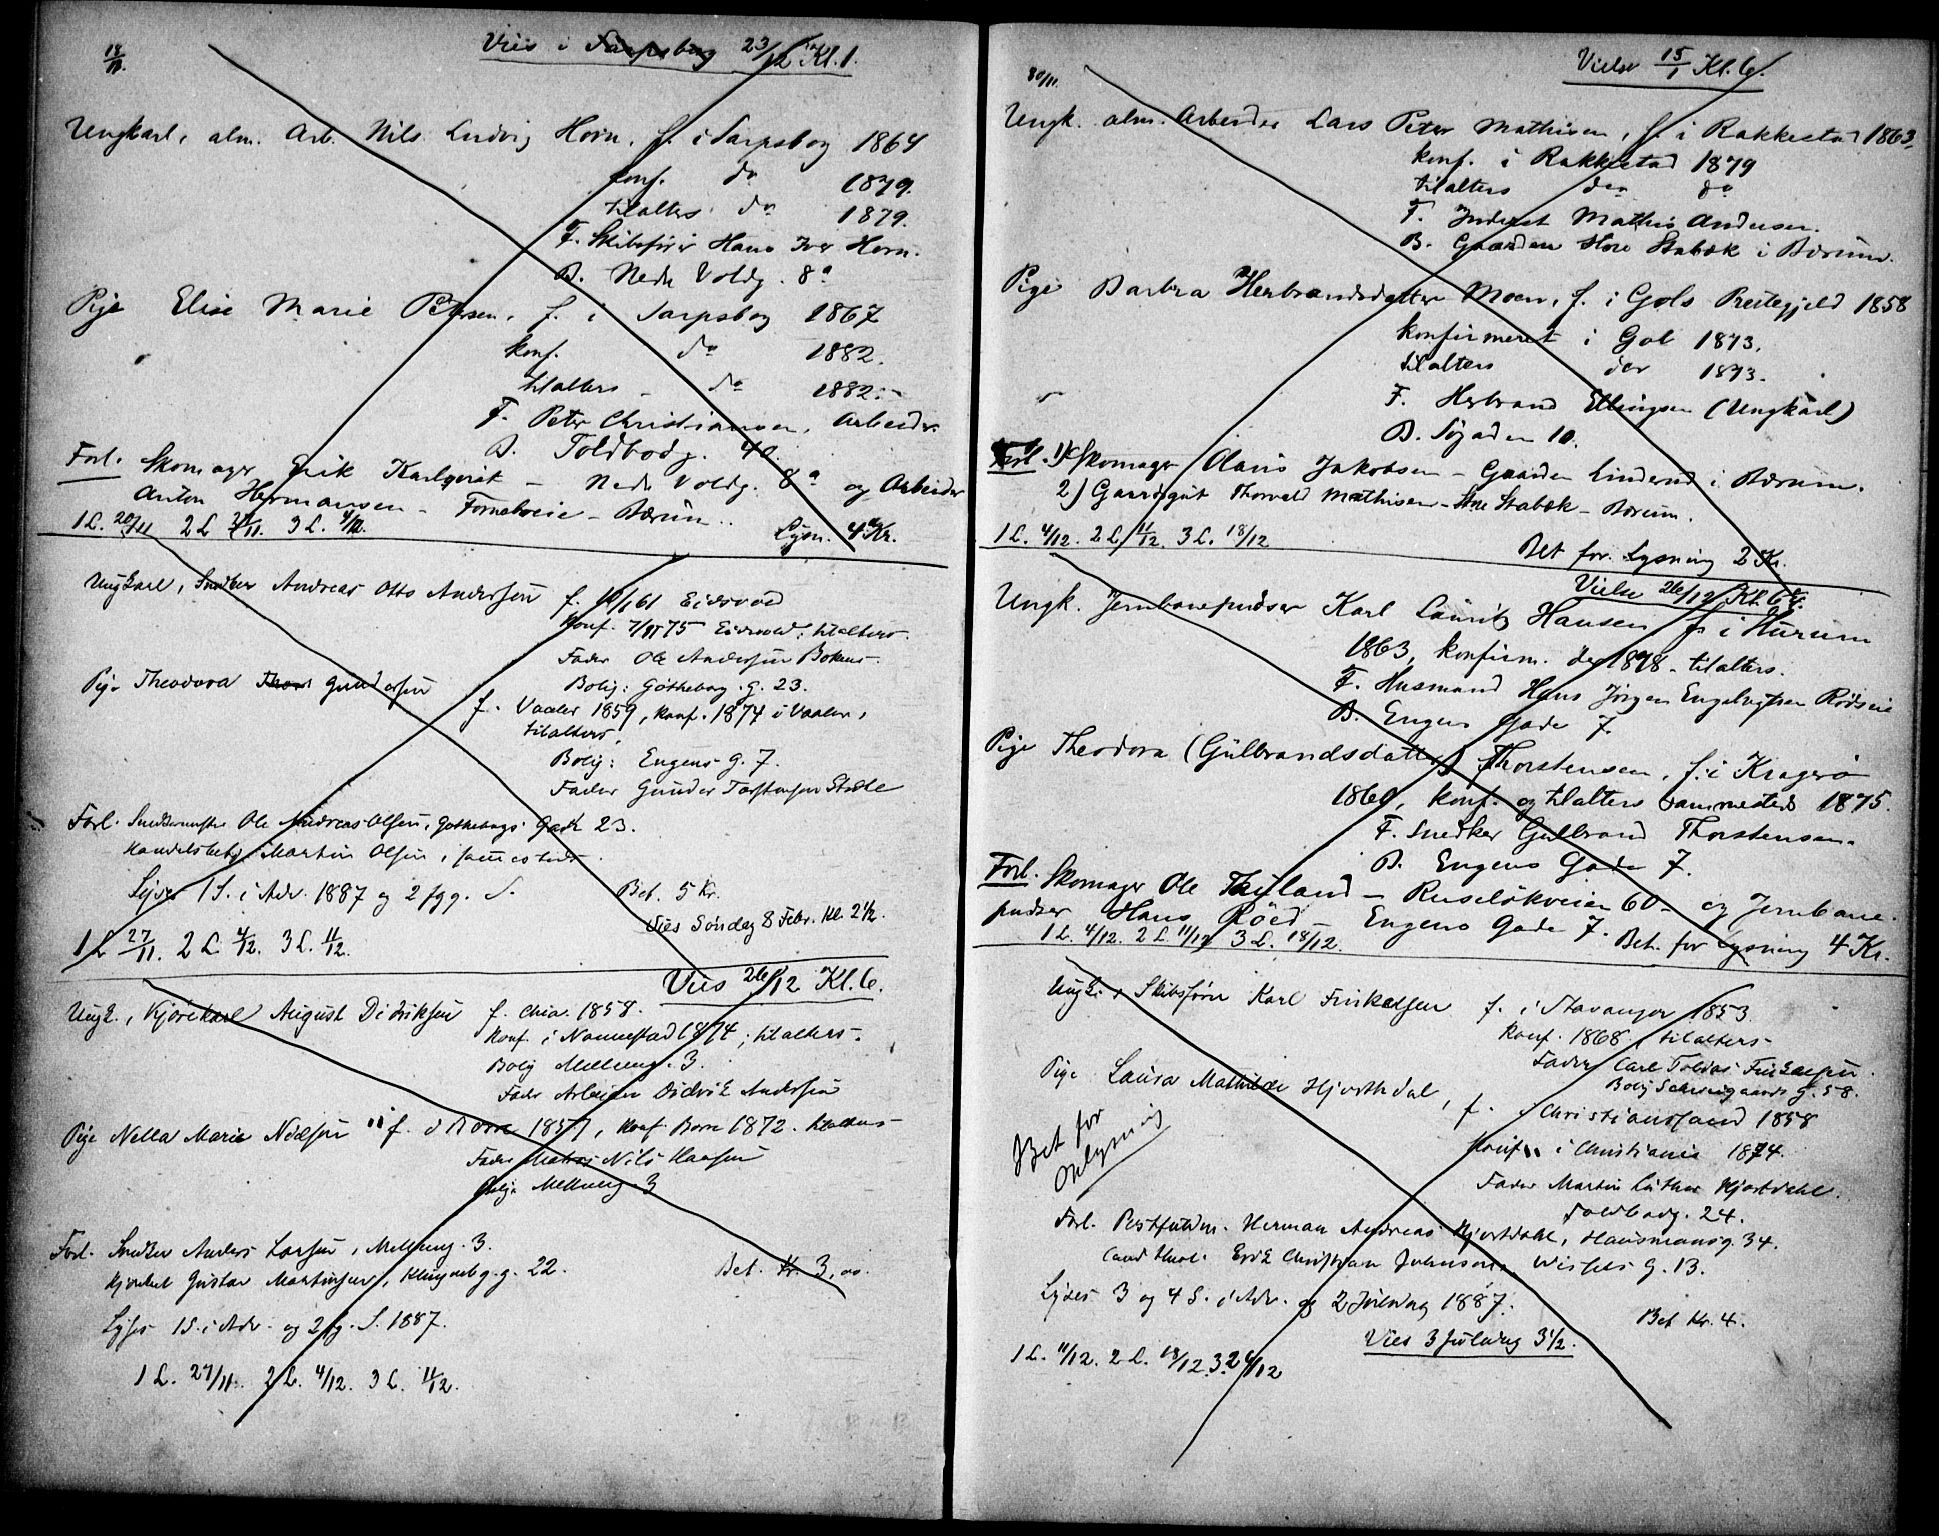 18/11.
Vies i Sarpsborg 23/12 Kl. 1.
Ungkarl, alm. Arb. Nils Ludvig Horn, f. i Sarpsborg 1864
konf. do 1879.
til alters do 1879.
F. Skibsfører Hans Iver Horn.
B. Nedr Voldg. 8a
Pige Elise Marie Petersen, f. i Sarpsborg 1867
konf. do 1882.
til alters do 1882.
F. Peter Christiansen, Arbeider
B. Toldbodg. 40
Forl. Skomager Erik Karlqvist - Nedr Voldg. 8a og Arbeider
Anton Hermansen - Fornebveie - Bærum..
1 L. 20/11 2 L 27/11. 3 L. 4/12. Lysn. 4 Kr.
Ungkarl, Snedker Andreas Otto Andersen f. /1 61 Eidsvold
Konf. 75 Eidsvold, til alters.
Fader Ole Andersen
Bolig: Gøtheborg. g. 23.
Pige Theodora Thor Gundersen
f. Vaaler 1859, konf. 1874 i Vaaler,
til alters,
Bolig: Engens g. 7.
Fader Gunder Torstensen
Forl. Snedkermester Ole Andreas Olsen, Gøtheborgs Gade 23.
Handelsbetj. Martin Olsen, sammesteds.
Lyses 1 S. i Adv. 1887 og 2 fgg. S. Bet. 5 Kr.
Vies Søndag 8 Febr. Kl. 2½.
1 L 27/11. 2 L. 4/12. 3 L. 11/12.
Vies 26/12 Kl. 6.
Ungk., Kjørekarl August Didriksen f. Chia. 1858.
Konf. i Nannestad 1874, til alters.
Bolig Mellemg. 3.
Fader Arbeider Didrik Andersen
Pige Nella Marie Nilsen f. i Borre 1857, konf. Borre 1872. til alters
Fader Matros Nils Hansen
Bolig Mellemg. 3
Forl. Snedker Anders Larsen, Mellemg. 3.
Gustav Martinsen, g. 22. Bet. Kr. 3,00.
Lyses 1 S. i Adv. og 2 fg. S. 1887.
1 L. 27/11. 2 L. 4/12. 3 L. 11/12.
30/11.
Vielse 15/1 Kl. 6.
Ungk. alm. Arbeider Lars Peter Mathisen, f. i Rakkestad 1863,
konf. i Rakkestad 1879
til alters der do
F. Inderst Mathis Andersen.
B. Gaarden Store Stabæk i Bærum.
Pige Barbra Herbrandsdatter Moen, f. i Gols Prestegjeld 1858
konfirmeret i Gol 1873,
til alters der 1873.
F. Herbrand Ellingsen (Ungkarl)
B. Søgaden 10.
Forl. 1) Skomager Olaus Jakobsen - Gaarden Linderud i Bærum.
2) Gaardsgut Thorvald Mathisen - Store Stabæk - Bærum.
1 L. 4/12. 2 L. 11/12. 3 L. 18/12
Bet for Lysning 2 Kr.
Vielse 26/12 Kl. 6
Ungk. Jernbanepudser Karl Lauritz Hansen f. i Hurum
1863, konfirm. der 1878. til alters.
F. Husmand Hans Jørgen Engelvigtsen Rødseie
B. Engens Gade 7.
Pige Theodora (Gulbrandsdatter) Thorstensen, f. i Kragerø
1860, konf. og til alters sammesteds 1875.
F. Snedker Gulbrand Thorstensen.
B. Engens Gade 7.
Forl. Skomager Ole Tryland - Ruseløkveien 60 - og Jernbane-
pudser Hans Røed - Engens Gade 7.
1 L. 4/12. 2 L 11/12 3 L. 18/12. Bet. for Lysning 4 Kr.
Ungk., Skibsfører Karl Finkelsen f. i Stavanger 1853
Konf. 1868, til alters
Fader Carl Tobias
Bolig Schweigaards g. 58.
Pige Laura Mathilde Hjorthdal, f. i Christianssand 1858
Konf. i Christiania 1874.
Fader Martin Luther Hjortdahl.
Toldbodg. 24.
Bet for
Oplysning
Forl. Postfuldm. Herman Andreas Hjortdahl, Hausmansg. 34.
Cand theol. Erik Christian Johnson, Wessels g. 13.
Lyses 3 og 4 S. i Adv. og 2 Juledag 1887.
Bet Kr. 4.
Vies 3 Juledag 3½.
1 L. 11/12. 2 L. 18/12 3. 26/12